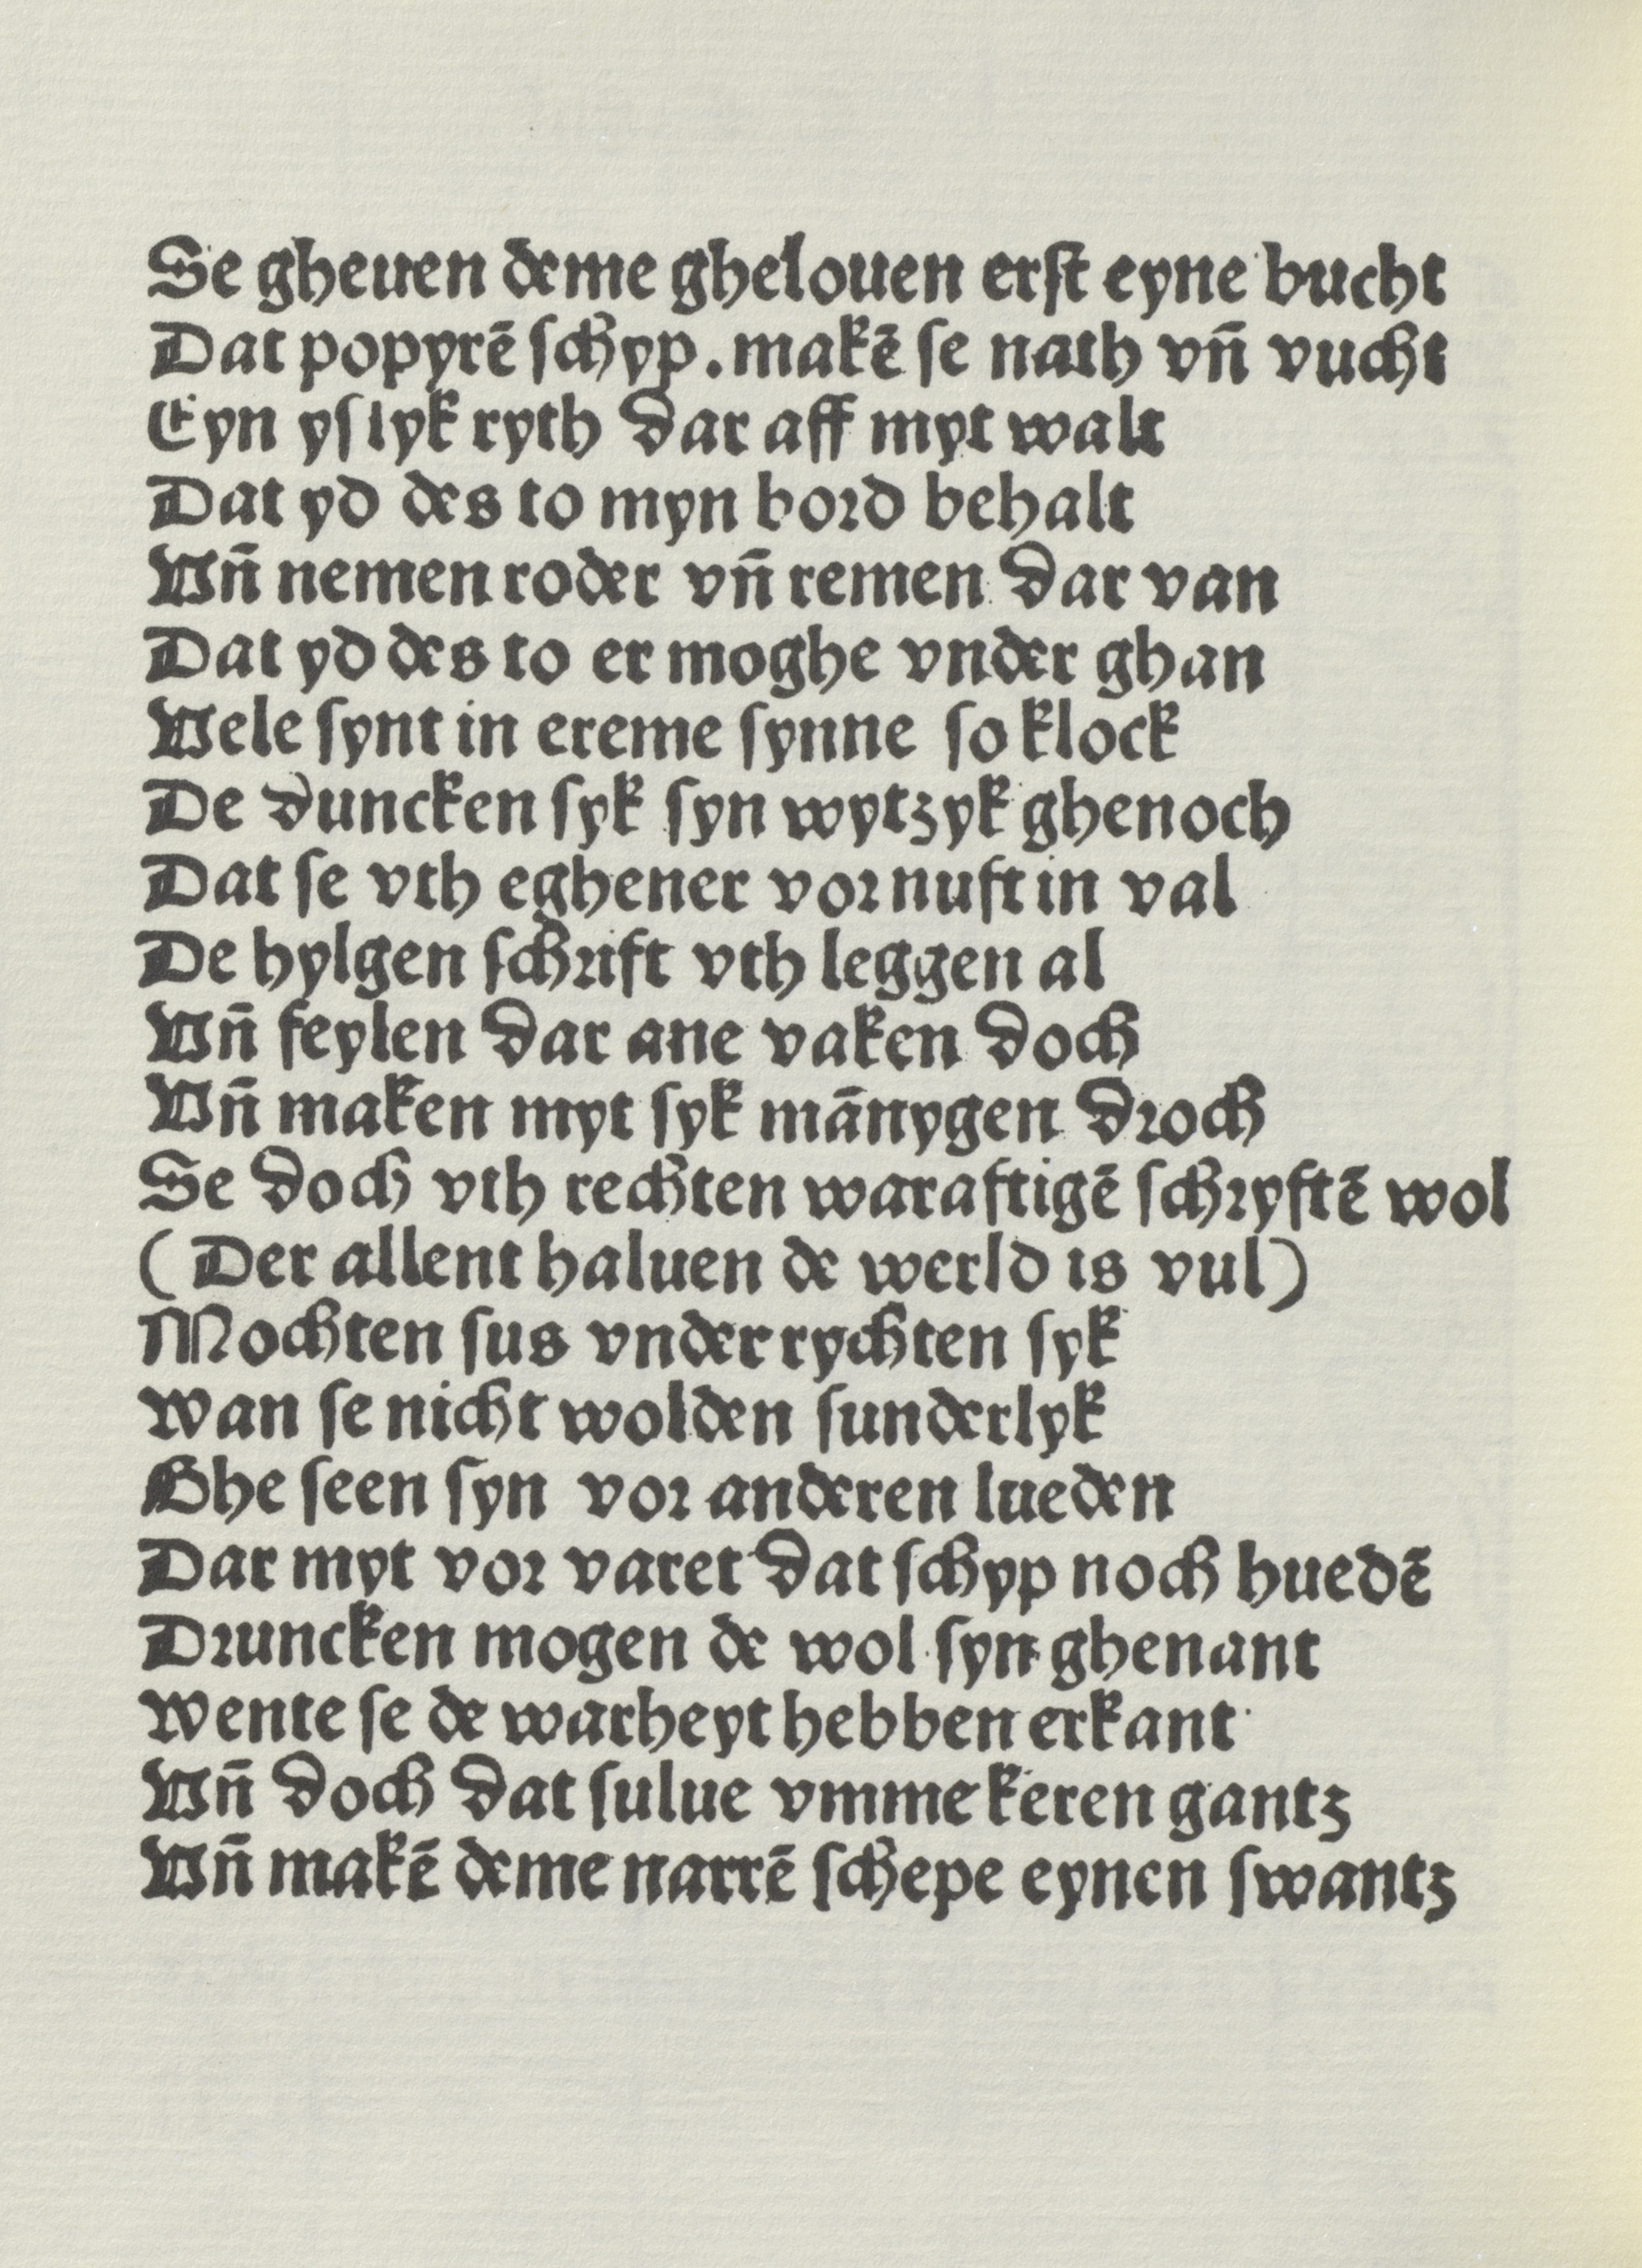 Se gheuen deme ghelouen erſt eyne bucht
Dat popyrē ſchyp. makē ſe nath vn̄ vucht
Eyn yſlyk ryth dar aff myt walt
Dat yd des to myn bord behalt
Vn̄ nemen roder vn̄ remen dar van
Dat yd des to er moghe vnder ghan
Vele ſynt in ereme ſynne ſo klock
De duncken ſyk ſyn wytzyk ghenoch
Dat ſe vth eghener vornuft in val
De hylgen ſchrift vth leggen al
Vn̄ feylen dar ane vaken doch
Vn̄ maken myt ſyk mānygen droch
Se doch vth rechten waraftigē ſchryftē wol
( Der allent haluen de werld is vul)
Mochten ſus vnder rychten ſyk
Wan ſe nicht wolden ſunderlyk
Ghe ſeen ſyn vor anderen lueden
Dar myt vor varet dat ſchyp noch huedē
Druncken mogen de wol ſyn ghenant
Wente ſe de warheyt hebben erkant
Vn̄ doch dat ſulue vmme keren gantz
Vn̄ makē deme narrē ſchepe eynen ſwantz